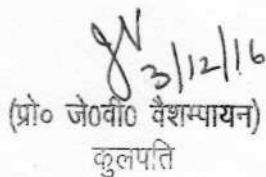 3/12/16
(प्रो० जे०वी० वैशम्पायन)
कुलपति